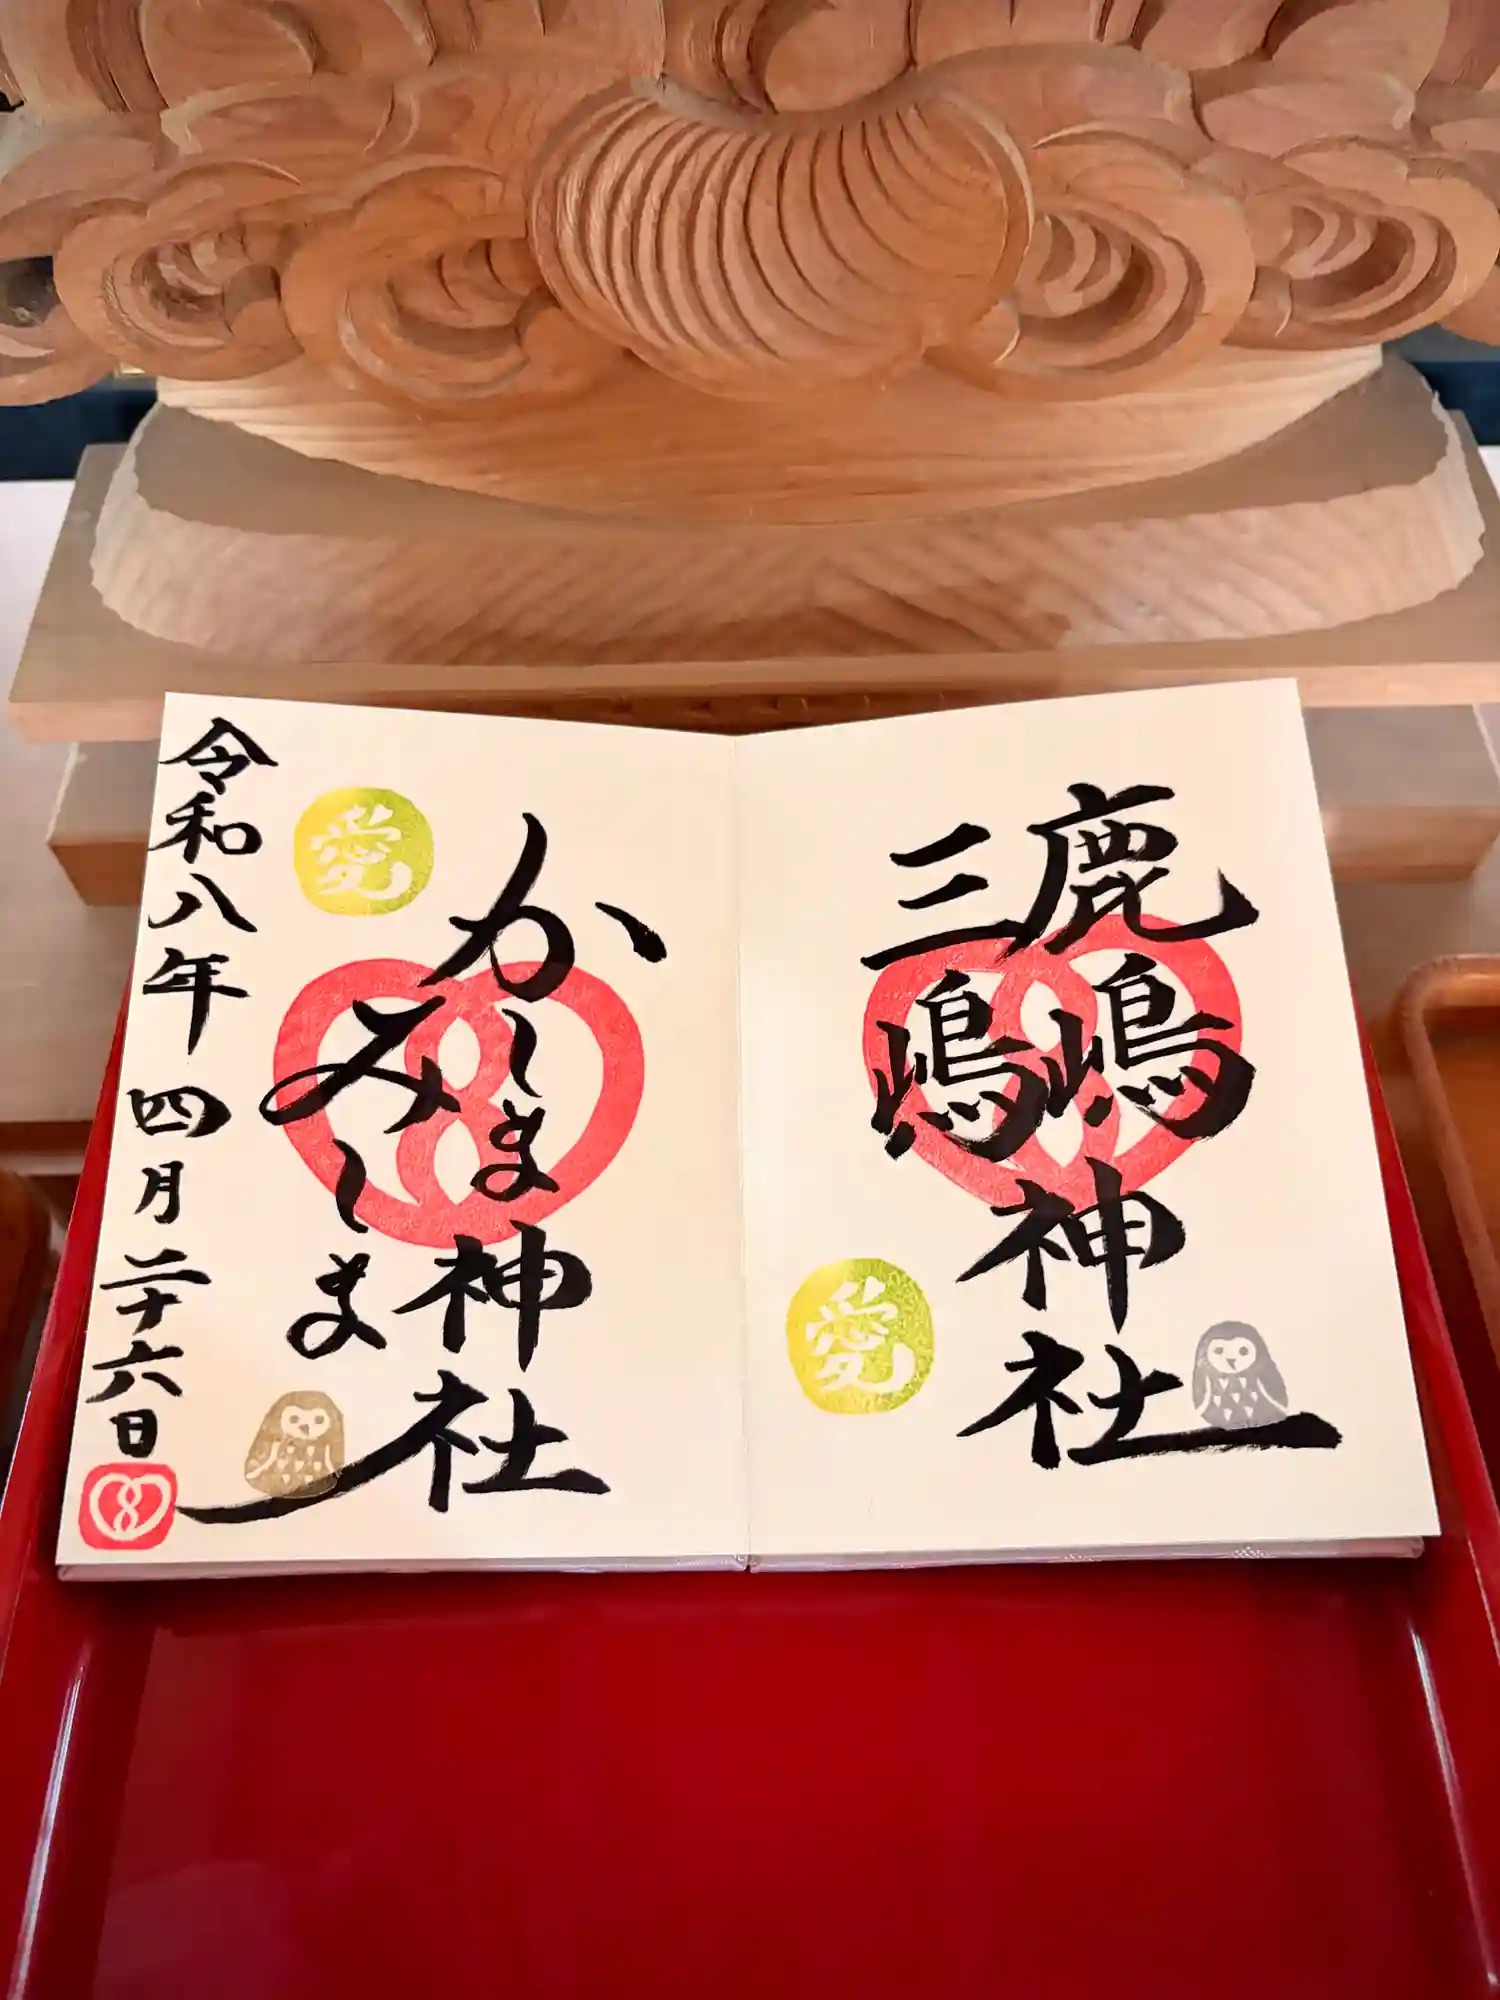 鹿嶋
三嶋
神社
愛
かしま
みしま
神社
愛
令和八年 四月二十六日